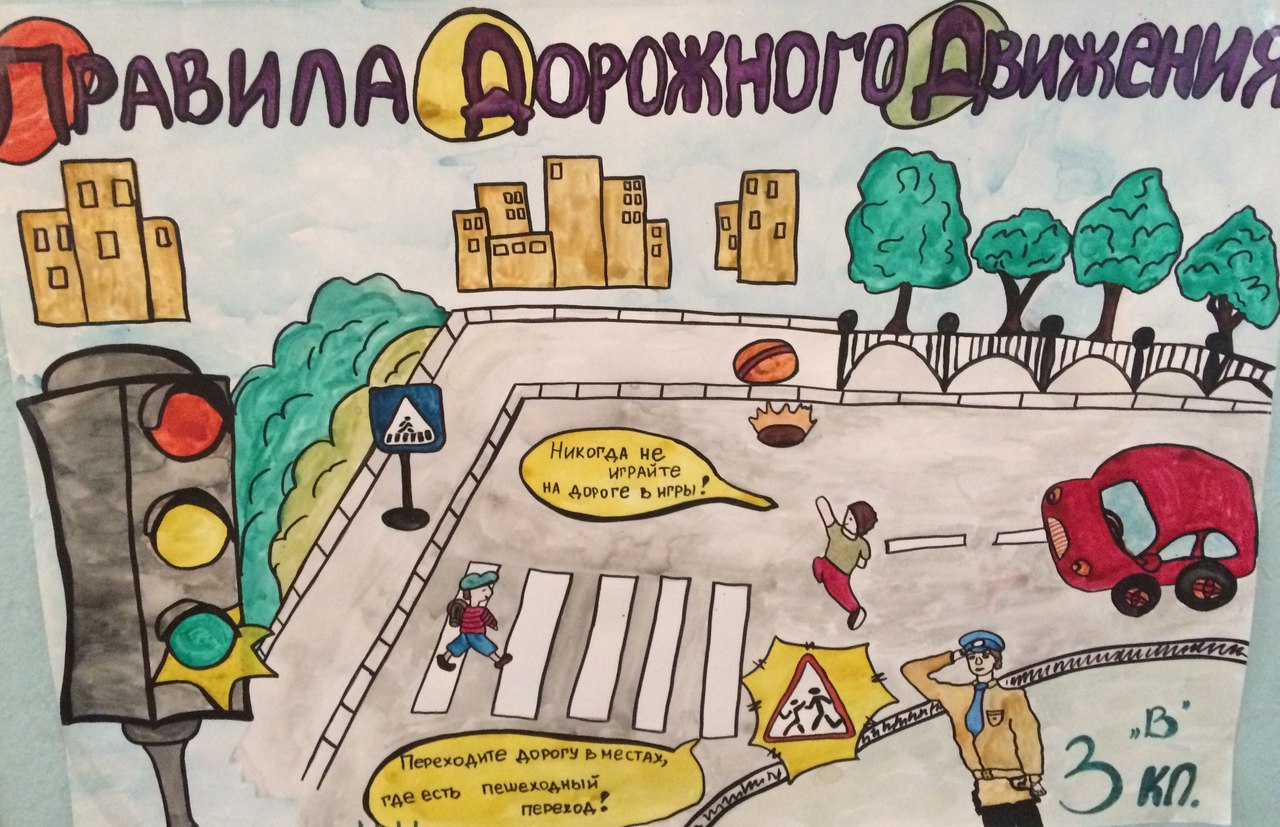 Правила Дорожного Движения
Никогда не
играйте
на дороге в игры!
Переходите дорогу в местах,
где есть пешеходный
переход!
3 „В"
кл.